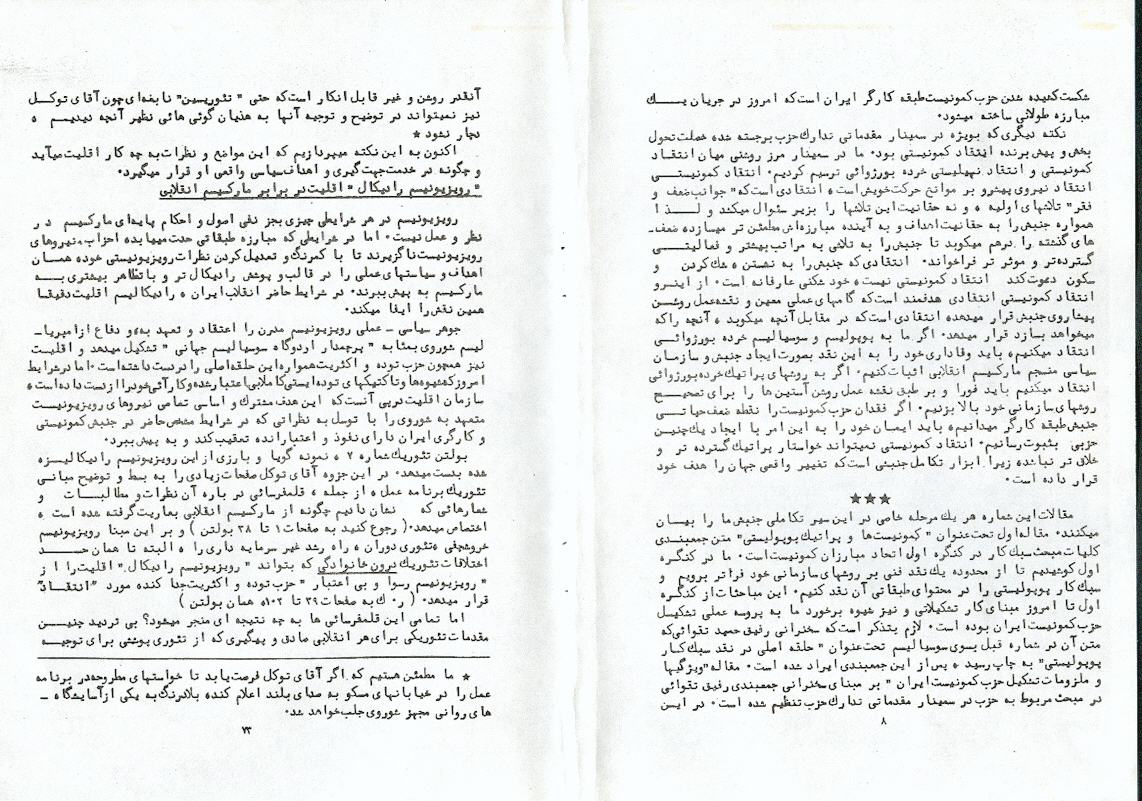 شکست کشیده شدن حزب کمونیست طبقه کارگر ایران است که امروز در جریان یک
مبارزه طولانی ساخته میشود.
نکته دیگری که بویژه در سمینار مقدماتی تدارک حزب برجسته شده خصلت تحول
بخش و پیش برنده انتقاد کمونیستی بود. ما در سمینار مرز روشنی میان انتقاد
کمونیستی و انتقاد نهیلیستی خرده بورژوائی ترسیم کردیم. انتقاد کمونیستی
انتقاد نیروی پیشرو بر موانع حرکت خویش است، انتقادی است که "جوانب ضعف و
فقر" تلاشهای اولیه، و نه حقانیت این تلاشها را بزیر سئوال میکند و لذا
همواره جنبش را به حقانیت اهداف و به آینده مبارزه اش مطمئن تر میسازد، ضعف
های گذشته را درهم میکوبد تا جنبش را به تلاشی به مراتب بیشتر و فعالیتی
گسترده تر و موثر تر فراخواند. انتقادی که جنبش را به نشستن، شک کردن و
سکون دعوت کند انتقاد کمونیستی نیست، خود شکنی عارفانه است. از اینرو
انتقاد کمونیستی انتقادی هدفمند است که گامهای عملی معین و نقشه عمل روشن
پیشاروی جنبش قرار میدهد، انتقادی است که در مقابل آنچه میکوبد، آنچه را که
میخواهد بسازد قرار میدهد. اگر ما به پوپولیسم و سوسیالیسم خرده بورژوائی
انتقاد میکنیم، باید وفاداری خود را به این نقد بصورت ایجاد جنبش و سازمان
سیاسی منسجم مارکسیسم انقلابی اثبات کنیم. اگر به روشهای پراتیک خرده بورژوائی
انتقاد میکنیم باید فورا و بر طبق نقشه عمل روشن آستین ها را برای تصحیح
روشهای سازمانی خود بالا بزنیم. اگر فقدان حزب کمونیست را نقطه ضعف حیاتی
جنبش طبقه کارگر میدانیم، باید ایمان خود را به این امر با ایجاد یک چنین
حزبی بثبوت رسانیم. انتقاد کمونیستی نمیتواند خواستار پراتیک گسترده تر و
خلاق تر نباشد، زیرا ابزار تکامل جنبشی است که تغییر واقعی جهان را هدف خود
قرار داده است.
★★★
مقالات این شماره هر یک مرحله خاصی در این سیر تکاملی جنبش ما را بیان
میکنند. مقاله اول تحت عنوان "کمونیست ها و پراتیک پوپولیستی" متن جمعبندی
کلیات مبحث سبک کار در کنگره اول اتحاد مبارزان کمونیست است. ما در کنگره
اول کوشیدیم تا از محدوده یک نقد فنی بر روشهای سازمانی خود فراتر برویم و
سبک کار پوپولیستی را در محتوای طبقاتی آن نقد کنیم. این مباحثات از کنگره
اول تا امروز مبنای کار تشکیلاتی و نیز شیوه برخورد ما به پروسه عملی تشکیل
حزب کمونیست ایران بوده است. لازم بتذکر است که سخنرانی رفیق حمید تقوائی که
متن آن در شماره قبل بسوی سوسیالیسم تحت عنوان "حلقه اصلی در نقد سبک کار
پوپولیستی" به چاپ رسید، پس از این جمعبندی ایراد شده است. مقاله "ویژگیها
و ملزومات تشکیل حزب کمونیست ایران" بر مبنای سخنرانی جمعبندی رفیق تقوائی
در مبحث مربوط به حزب در سمینار مقدماتی تدارک حزب تنظیم شده است. در ایسن
۸
آنقدر روشن و غیر قابل انکار است که حتی "تئوریسین" نابغه ای چون آقای توکل
نیز نمیتواند در توضیح و توجیه آنها به هذیان گوئی هائی نظیر آنچه دیدیم،
دچار نشود★
اکنون به این نکته میپردازیم که این مواضع و نظرات به چه کار اقلیت میآید
و چگونه در خدمت جهت گیری و اهداف سیاسی واقعی او قرار میگیرد.
"رویزیونیسم رادیکال" اقلیت در برابر مارکسیسم انقلابی
رویزیونیسم در هر شرایطی چیزی بجز نفی اصول و احکام پایه ای مارکسیسم در
نظر و عمل نیست. اما در شرایطی که مبارزه طبقاتی حدت مییابد، احزاب و نیروهای
رویزیونیست ناگزیرند تا با کمرنگ و تعدیل کردن نظرات رویزیونیستی خود، همان
اهداف و سیاستهای عملی را در قالب و پوشش رادیکال تر و با تظاهر بیشتری به
مارکسیسم به پیش ببرند. در شرایط حاضر انقلاب ایران، رادیکالیسم اقلیت دقیقا
همین نقش را ایفا میکند.
جوهر سیاسی - عملی رویزیونیسم مدرن را اعتقاد و تعهد به، و دفاع از امپریا-
لیسم شوروی بمثابه "پرچمدار اردوگاه سوسیالیسم جهانی" تشکیل میدهد و اقلیت
نیز همچون حزب توده و اکثریت همواره این حلقه اصلی را در دست داشته است. اما در شرایط
امروز که شیوه ها و تاکتیکهای توده ایستی کاملا بی اعتبار شده و کارآئی خود را از دست داده است،
سازمان اقلیت در پی آنست که این هدف مشترک و اساسی تمامی نیروهای رویزیونیست
متعهد به شوروی را با توسل به نظراتی که در شرایط مشخص حاضر در جنبش کمونیستی
و کارگری ایران دارای نفوذ و اعتبارانده تعقیب کند و به پیش ببرد.
بولتن تئوریک شماره ۲، نمونه گویا و بارزی از این رویزیونیسم رادیکالیزه
شده بدست میدهد. در این جزوه آقای توکل صفحات زیادی را به بسط و توضیح مبانی
تئوریک برنامه عمل، از جمله، قلمفرسائی در باره آن نظرات و مطالبات و
شعارهائی که نشان دادیم چگونه از مارکسیسم انقلابی بعاریت گرفته شده است،
اختصاص میدهد. (رجوع کنید به صفحات ۱ تا ۳۸ بولتن) و بر این مبنا رویزیونیسم
خروشچفی، تئوری دوران، راه رشد غیر سرمایه داری را، البته تا همان حد
اختلافات تئوریک درون خانوادگی که بتواند "رویزیونیسم رادیکال" اقلیت را از
"رویزیونیسم رسوا و بی اعتبار" حزب توده و اکثریت جدا کند، مورد "انتقاد"
قرار میدهد. (ر. ک به صفحات ۳۹ تا ۱۰۲، همان بولتن)
اما تمامی این قلمفرسائی ها به چه نتیجه ای منجر میشود؟ بی تردید چنین
مقدمات تئوریکی برای هر انقلابی صادق و پیگیری که از تئوری پوششی برای توجیه
★ ما مطمئن هستیم که اگر آقای توکل فرصت یابد تا خواستهای مطروحه در برنامه
عمل را در خیابانهای مسکو به صدای بلند اعلام کند، بلادرنگ به یکی از آسایشگاه -
های روانی مجهز شوروی جلب خواهد شد.
۷۳